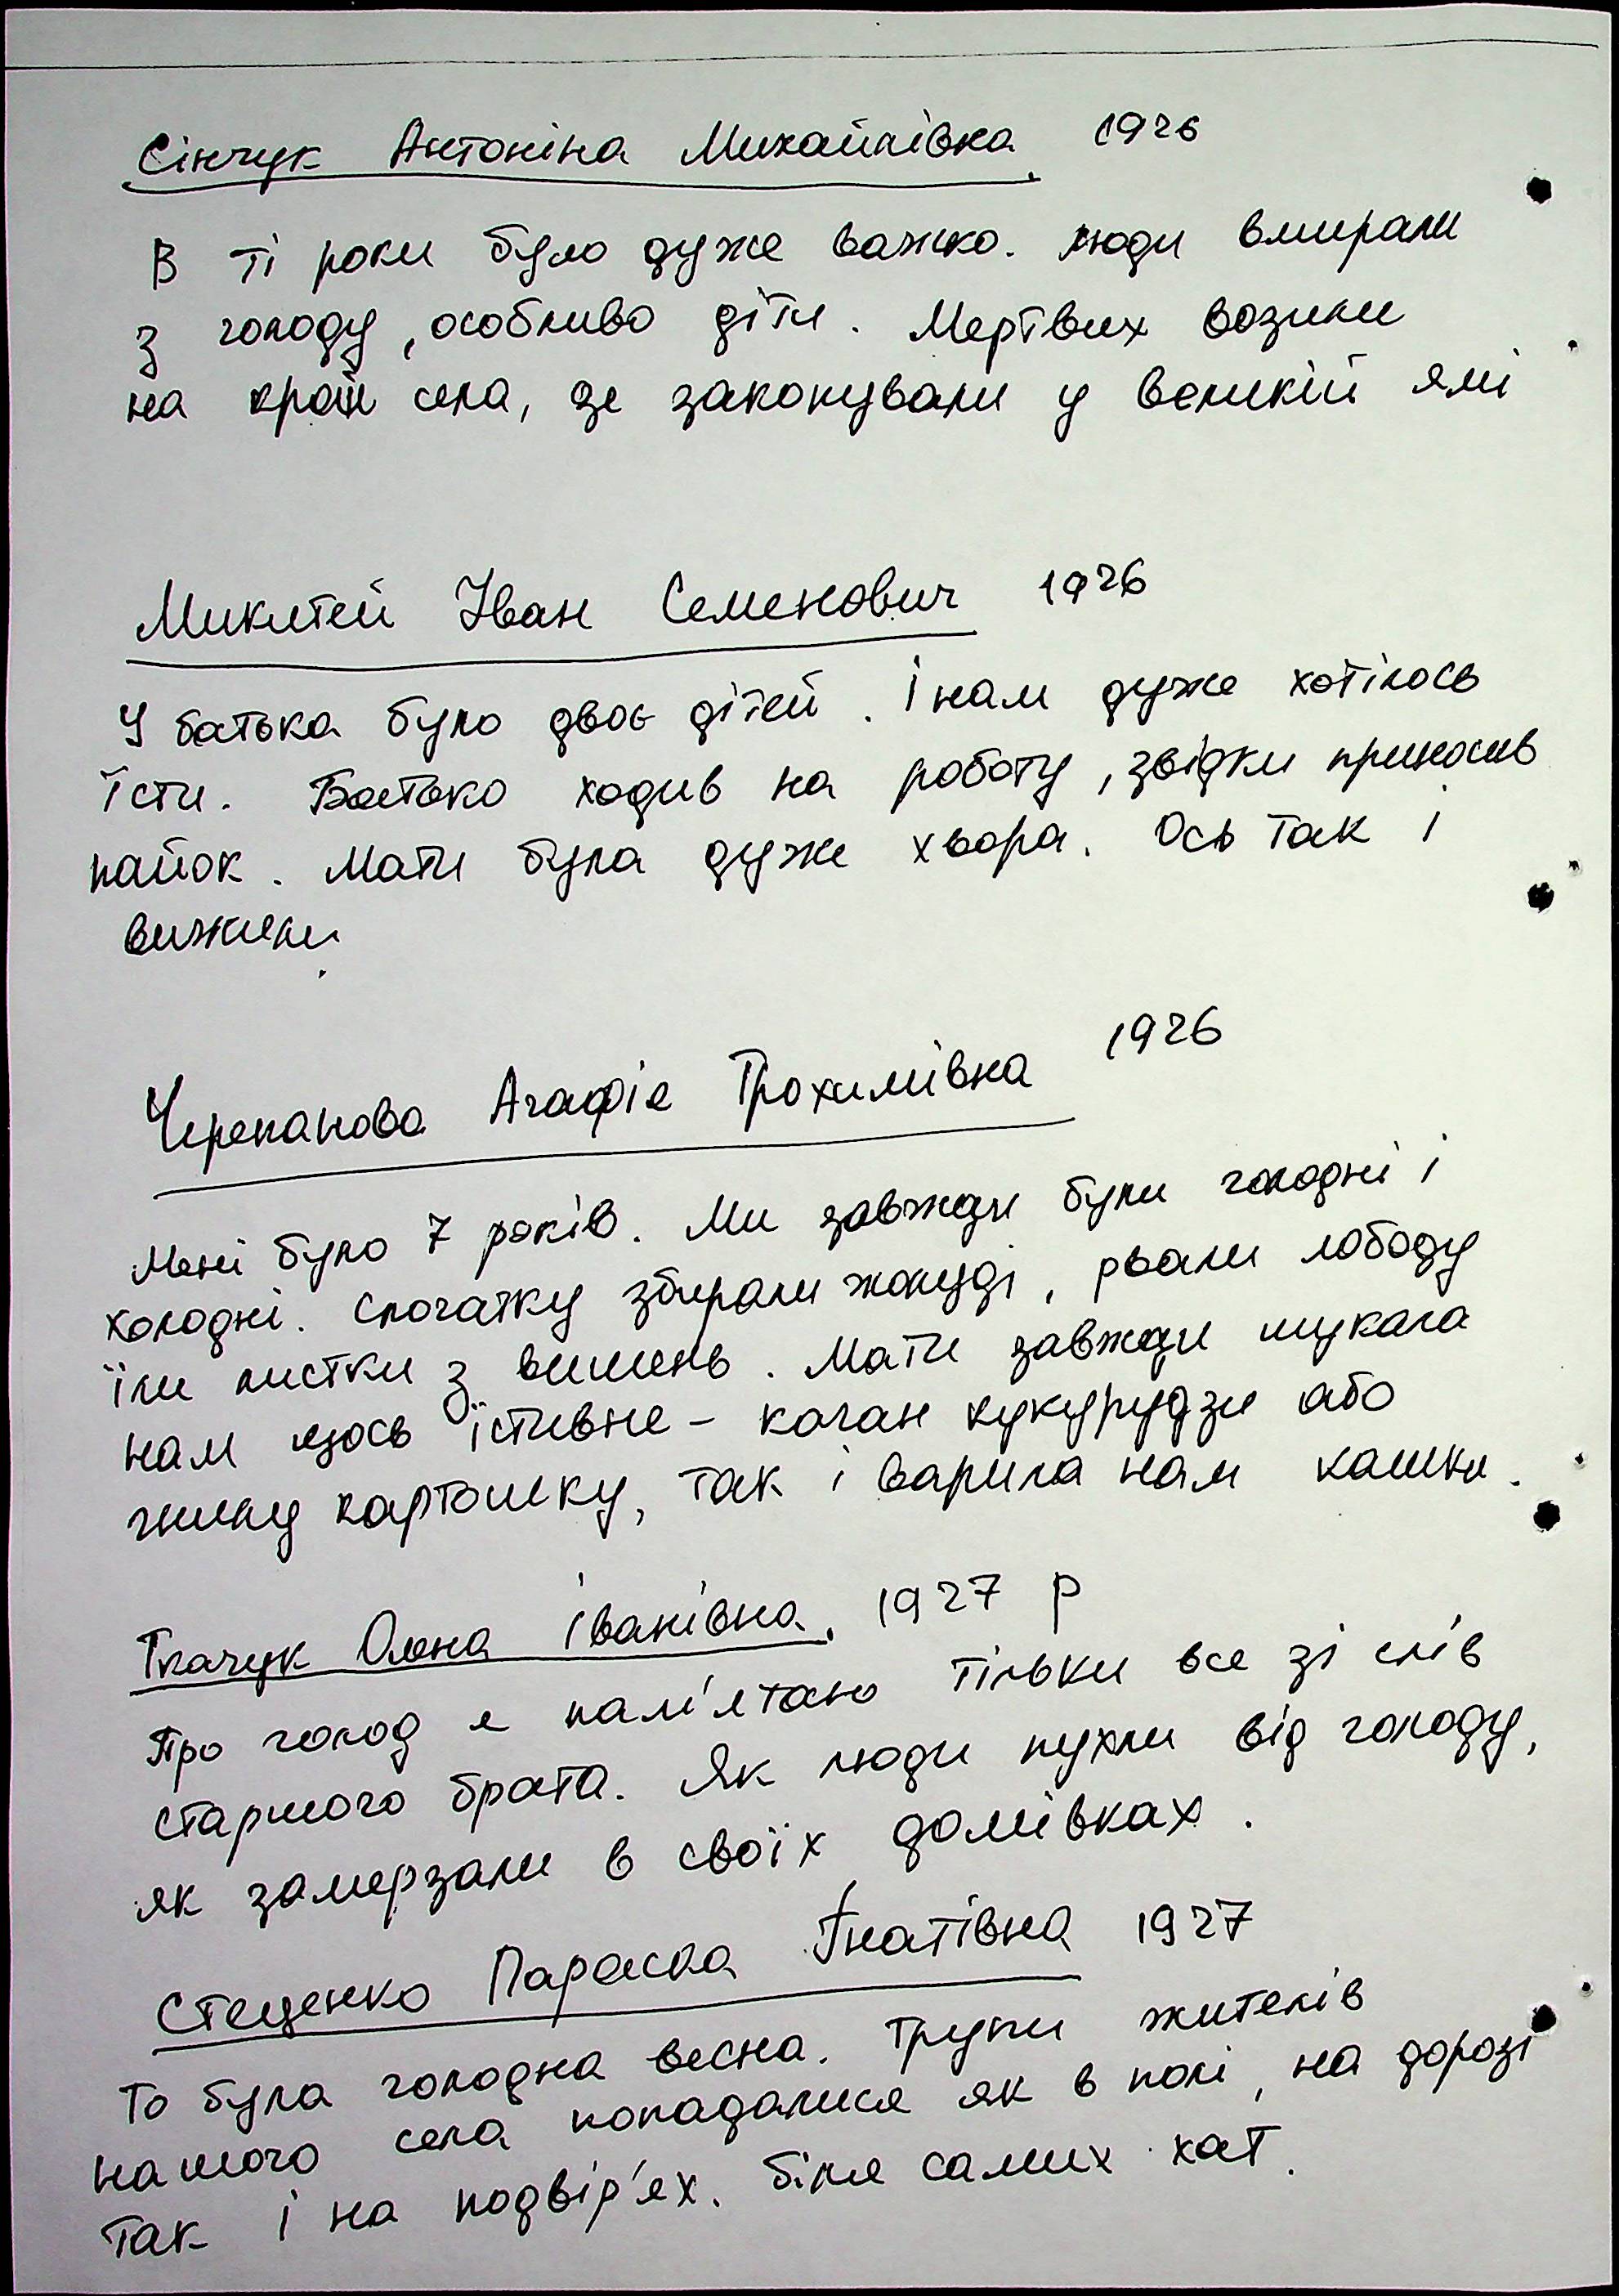 Сінчук Антоніна Михайлівна 1926
В ті роки було дуже важко. люди вмирали
з голоду, особливо діти. Мертвих возили
на край села, де закопували у великій ямі
Микитей Іван Семенович 1926
У батька було двоє дітей. І нам дуже хотілось
їсти. Батько ходив на роботу, звідки приносив
пайок. Мати була дуже хвора. Ось так і
вижили.
Черепанова Агафія Трохимівна 1926
Мені було 7 років. Ми завжди були голодні і
холодні. Спочатку збирали жолуді, рвали лободу
їли листки з вишень. Мати завжди шукала
нам щось їстивне - качан кукурудзи або
гнилу картошку, так і варила нам кашки.
Ткачук Олена Іванівна. 1927 р
Про голод я пам'ятаю тільки все зі слів
старшого брата. Як люди пухли від голоду,
як замерзали в своїх домівках.
Стеценко Параска Гнатівна 1927
То була голодна весна. Трупи жителів
нашого села попадалися як в полі, на дорозі
так і на подвір'ях. біля самих хат.